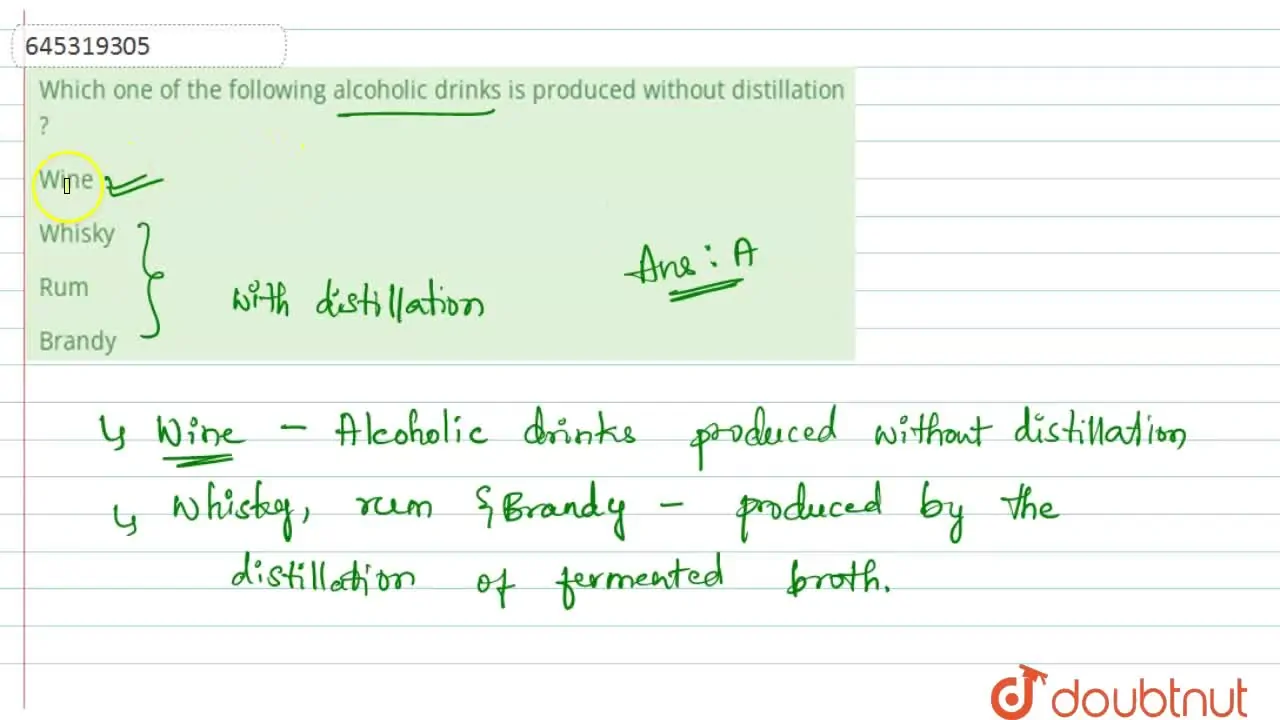 645319305
Which one of the following alcoholic drinks is produced without distillation
?
Wine
Whisky
Rum
Brandy
with distillation
Ans: A
↳ Wine - Alcoholic drinks produced without distillation
↳ Whisky, rum & Brandy - produced by the
distillation of fermented broth.
doubtnut